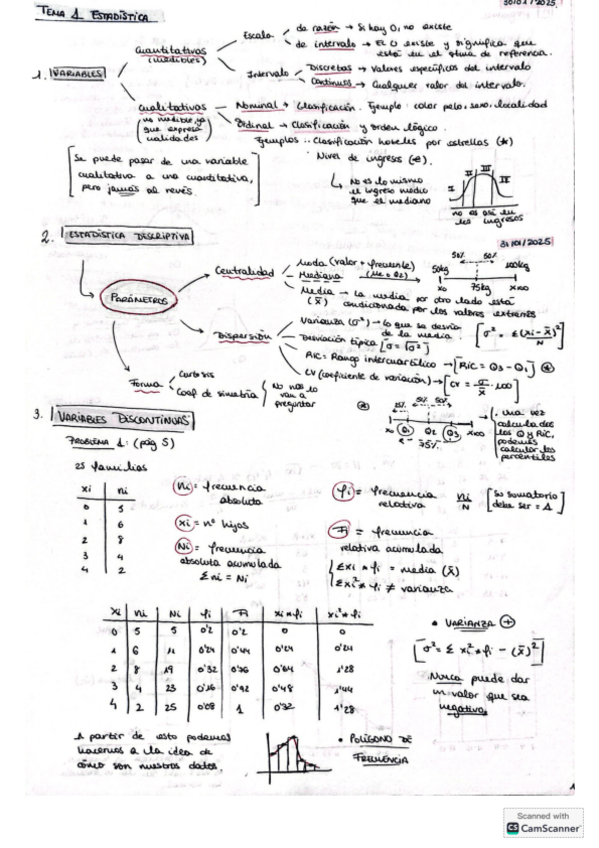 TEMA 1. ESTADÍSTICA
30/01/2025
1. VARIABLES
Cuantitativas (medibles)
Escala
de razón → Si hay 0, no existe
de intervalo → El 0 existe y significa que está en el punto de referencia.
Intervalo
Discretas → Valores específicos del intervalo
Continuas → Cualquier valor del intervalo.
Cualitativas
no medible, ya que expresa cualidades
Nominal → Clasificación. Ejemplo: color pelo, sexo, localidad
Ordinal → Clasificación y orden lógico.
Ejemplos: Clasificación hoteles por estrellas (*)
Nivel de ingresos (€).
Se puede pasar de una variable
cualitativa a una cuantitativa,
pero jamás al revés.
No es lo mismo
el ingreso medio
que el mediano
I II III IV
no es así en
los ingresos
2. ESTADÍSTICA DESCRIPTIVA
31/01/2025
PARÁMETROS
Centralidad
Moda (valor + frecuente)
Mediana (Me = Q2)
Media → la media por otro lado está
(x̄) condicionada por los valores extremos
50% 50%
50kg 100kg
x0 75kg x100
Dispersión
Varianza (σ²) → lo que se desvía de la media. [σ² = Σ(xi - x̄)²/N]
Desviación típica [σ = √σ²]
RIC = Rango intercuartílico → [RIC = Q3 - Q1] *
CV (coeficiente de variación) → [CV = σ/x̄ · 100]
Forma
Curtosis
Coef de simetría
No nos lo
van a
preguntar
* 25% 50%
x0 Q1 Q2 Q3 x100
75%
una vez
calculados
los Q y RIC,
podemos
calcular los
percentiles
3. VARIABLES DISCONTINUAS
PROBLEMA 1: (pág 5)
25 familias
xi ni
0 5
1 6
2 8
3 4
4 2
ni = frecuencia
absoluta
xi = nº hijos
Ni = frecuencia
absoluta acumulada
Σni = Ni
fi = frecuencia
relativa
ni/N
Su sumatorio
debe ser = 1
Fi = frecuencia
relativa acumulada
Σxi * fi = media (x̄)
Σxi² * fi ≠ varianza
xi ni Ni fi Fi xi*fi xi²*fi
0 5 5 0'2 0'2 0 0
1 6 11 0'24 0'44 0'24 0'24
2 8 19 0'32 0'76 0'64 1'28
3 4 23 0'16 0'92 0'48 1'44
4 2 25 0'08 1 0'32 1'28
• VARIANZA +
[σ² = Σ xi² * fi - (x̄)²]
Nunca puede dar
un valor que sea
negativo.
A partir de esto podemos
hacernos a la idea de
cómo son nuestros datos.
• POLÍGONO DE
FRECUENCIA
1
Scanned with
CS CamScanner